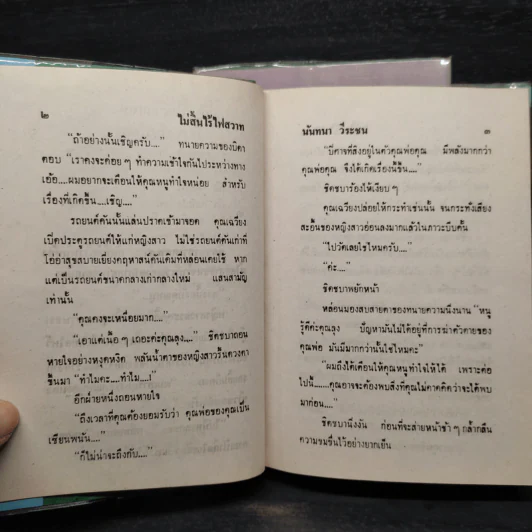 ๒ ไม่สิ้นไร้ไฟสวาท
"ถ้าอย่างนั้นเชิญครับ...." ทนายความของบิดา
ตอบ "เราคงจะค่อยๆ ทำความเข้าใจกันไประหว่างทาง
เอ้อ....ผมอยากจะเตือนให้คุณหนูทำใจหน่อย สำหรับ
เรื่องที่เกิดขึ้น....เชิญ...."
รถยนต์คันนั้นแล่นปราดเข้ามาจอด คุณเฉวียง
เปิดประตูรถยนต์ให้แก่หญิงสาว ไม่ใช่รถยนต์คันเก่าที่
โอ่อ่าสุขสบายเยี่ยงคฤหาสน์คันเดิมที่หล่อนเคยใช้ หาก
แต่เป็นรถยนต์ขนาดกลางเก่ากลางใหม่ แสนสามัญ
เท่านั้น
"คุณคงจะเหนื่อยมาก...."
"เอาแต่เนื้อๆ เถอะค่ะคุณลุง...." ชิดชบาถอน
หายใจอย่างหงุดหงิด พลันน้ำตาของหญิงสาวรื้นดวงตา
ขึ้นมา "ทำไมคะ....ทำไม....!"
อีกฝ่ายหนึ่งถอนหายใจ
"ถึงเวลาที่คุณต้องยอมรับว่า คุณพ่อของคุณเป็น
เซียนพนัน...."
"ก็ไม่น่าจะถึงกับ...."
นันทนา วีระชน ๓
"ปีศาจที่สิงอยู่ในตัวคุณพ่อคุณ มีพลังมากกว่า
คุณพ่อคุณ จึงได้เกิดเรื่องนี้ขึ้น...."
ชิดชบาร้องไห้เงียบๆ
คุณเฉวียงปล่อยให้กระทำเช่นนั้น จนกระทั่งเสียง
สะอื้นของหญิงสาวอ่อนลงมากแล้วในภาวะบีบคั้น
"ไปวัดเลยใช่ไหมครับ...."
"ค่ะ...."
ชิดชบาพยักหน้า
หล่อนมองสบสายตาของทนายความนิ่งนาน "หนู
รู้ดีค่ะคุณลุง ปัญหามันไม่ได้อยู่ที่การฆ่าตัวตายของ
คุณพ่อ มันมีมากกว่านั้นใช่ไหมคะ"
"ผมถึงได้เตือนให้คุณหนูทำใจให้ได้ เพราะต่อ
ไปนี้......คุณอาจจะต้องพบสิ่งที่คุณไม่คาดคิดว่าจะได้พบ
มาก่อน...."
ชิดชบานิ่งงัน ก่อนที่จะส่ายหน้าช้าๆ กล้ำกลืน
ความขมขื่นไว้อย่างยากเย็น